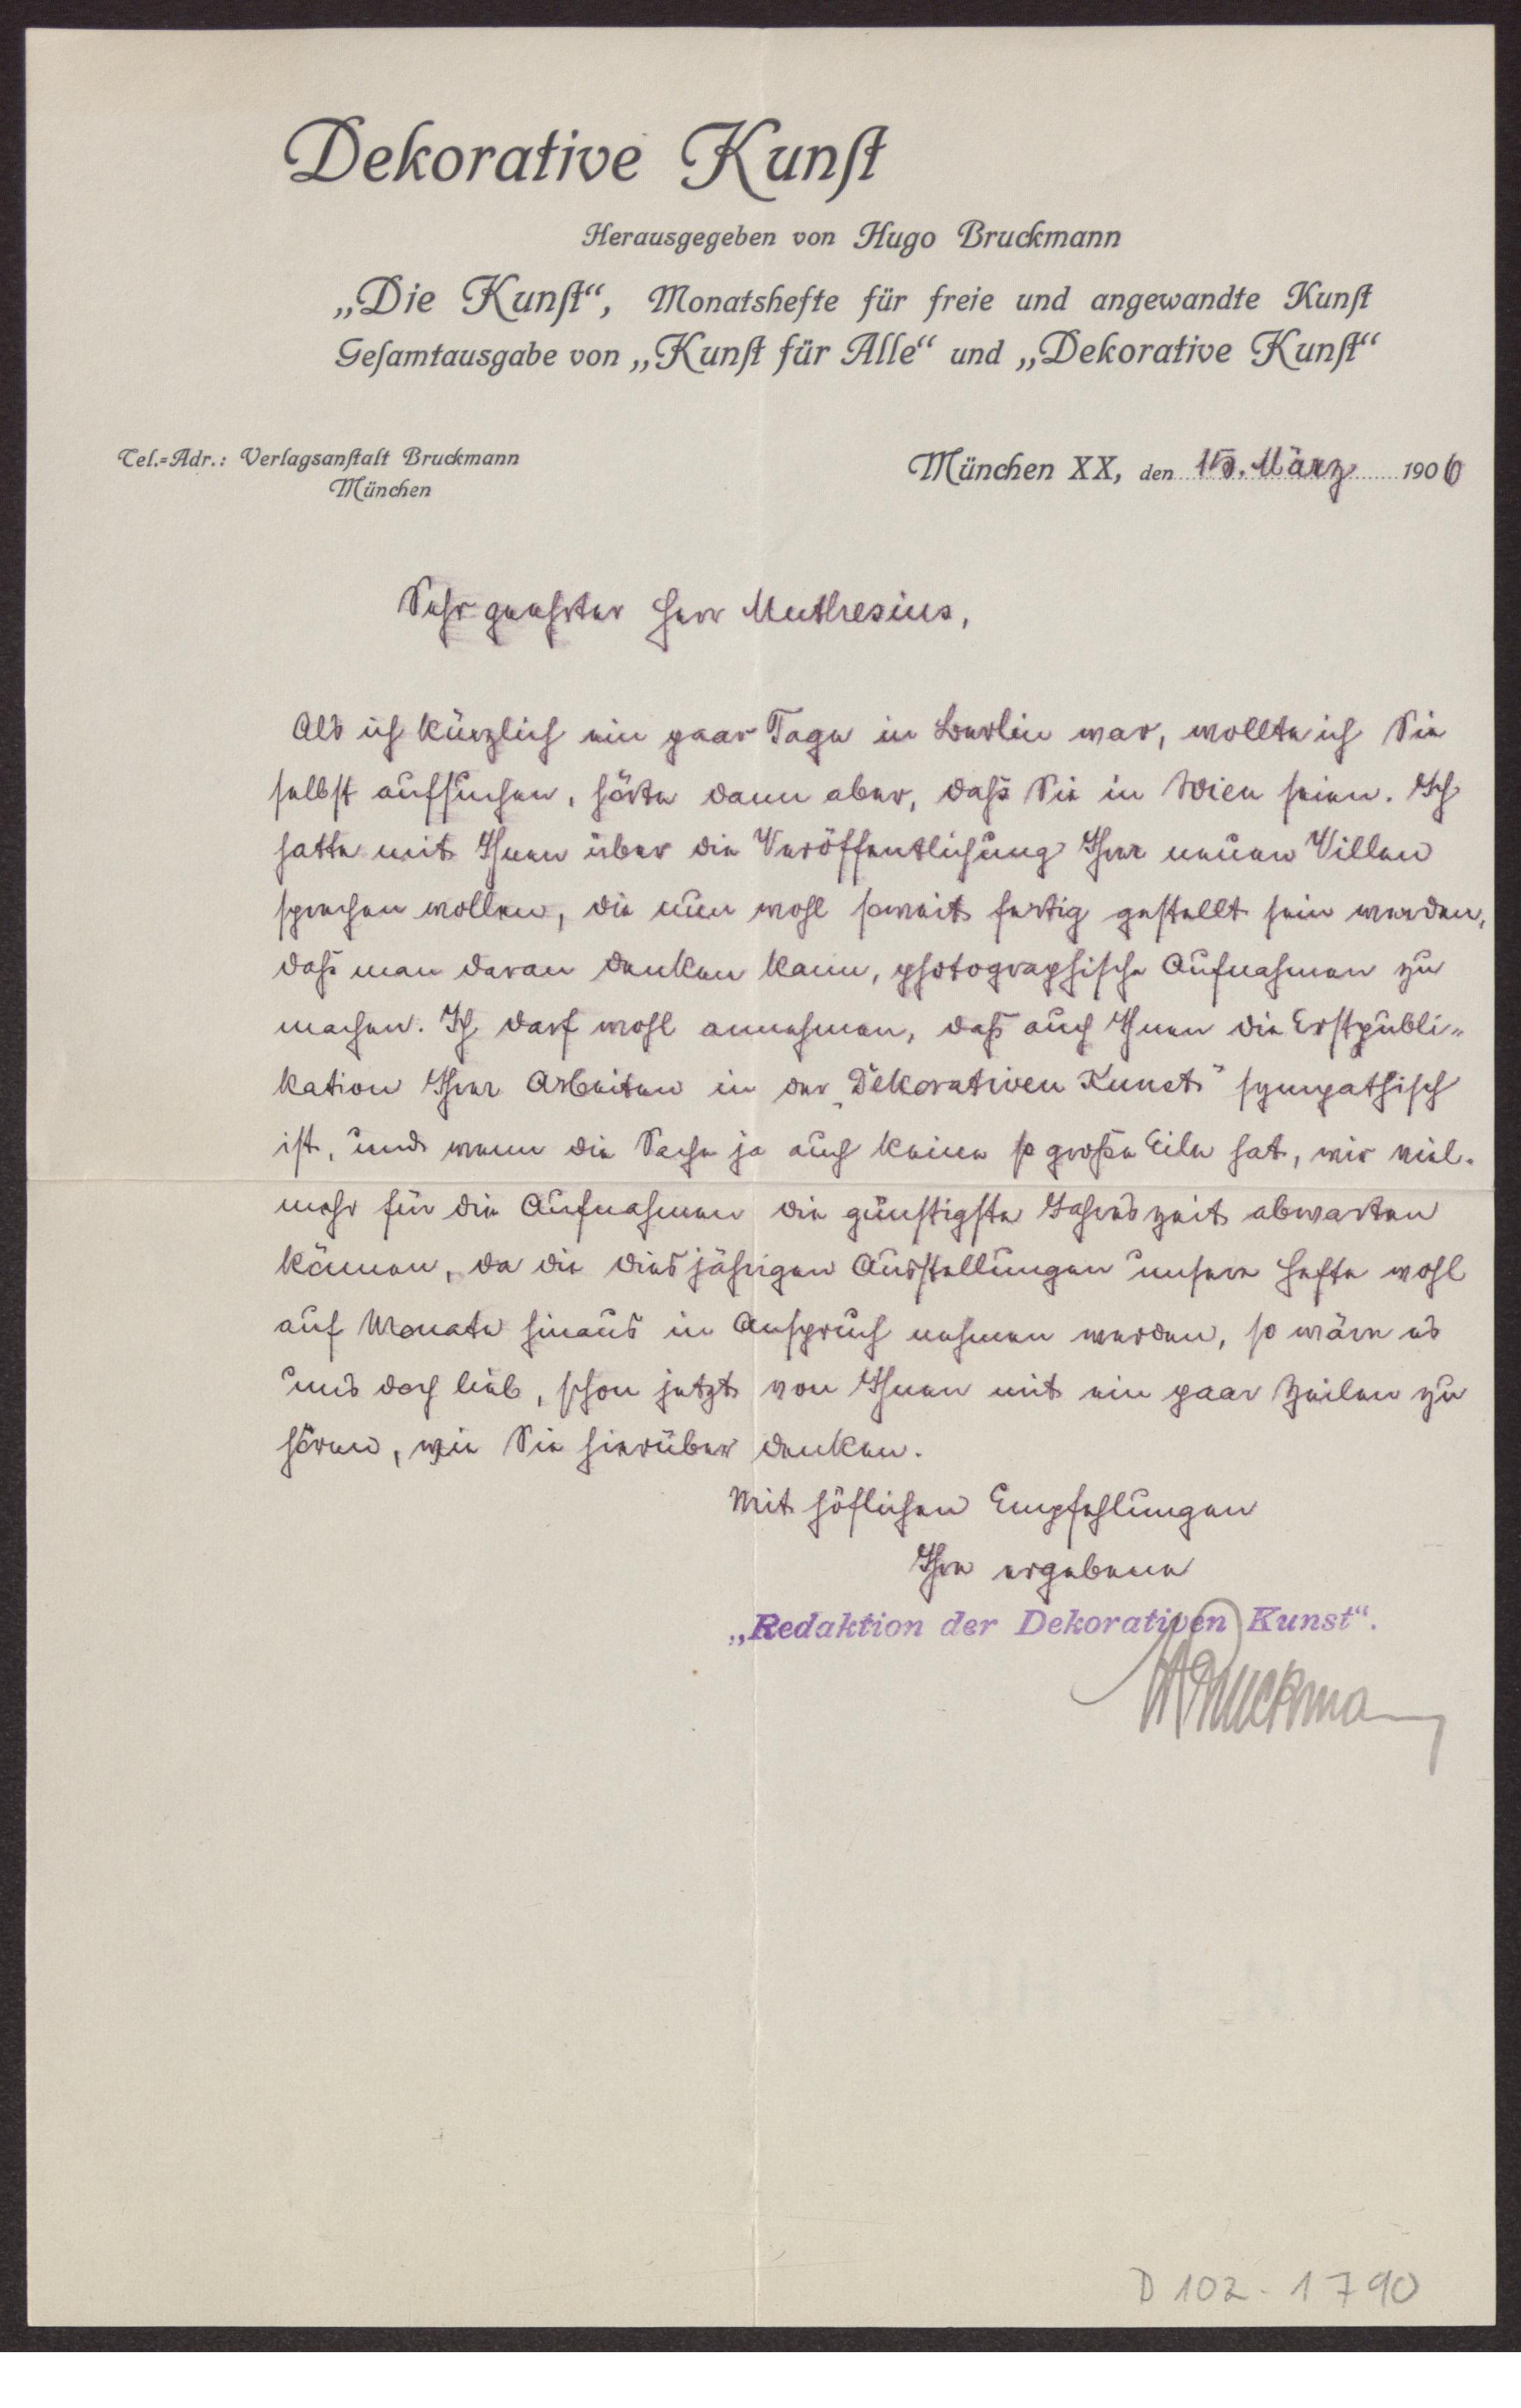 Dekorative Kunſt
Herausgegeben von Hugo Bruckmann
„Die Kunſt“, Monatshefte für freie und angewandte Kunſt
Geſamtausgabe von „Kunſt für Alle“ und „Dekorative Kunſt“
Tel.=Adr.: Verlagsanſtalt Bruckmann
München
München XX, den 15. März 1906
Sehr geehrter Herr Muthesius,
Als ich kürzlich ein paar Tage in Berlin war, wollte ich Sie
selbst aufsuchen, hörte dann aber, dass Sie in Wien seien. Ich
hatte mit Ihnen über die Veröffentlichung Ihrer neuen Villen
sprechen wollen, die nun wohl soweit fertig gestellt sein werden,
dass man daran denken kann, photographische Aufnahmen zu
machen. Ich darf wohl annehmen, dass auch Ihnen die Erstpubli-
kation Ihrer Arbeiten in der „Dekorativen Kunst“ sympathisch
ist, und wenn die Sache ja auch keine so große Eile hat, wir viel-
mehr für die Aufnahmen die günstigste Jahreszeit abwarten
können, da die diesjährigen Ausstellungen unsere Hefte wohl
auf Monate hinaus in Anspruch nehmen werden, so wäre es
uns doch lieb, schon jetzt von Ihnen mit ein paar Zeilen zu
hören, wie Sie hierüber denken.
Mit höflichen Empfehlungen
Ihre ergebene
„Redaktion der Dekorativen Kunst“.
HBruckmann
D 102 - 1790